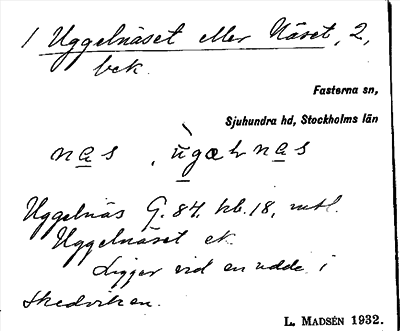 1 Uggelnäset eller Näset, 2,
bek.
Fasterna sn,
Sjuhundra hd, Stockholms län
nas, ùgælnas
Uggelnäs G. 84. hb. 18, mtl.
Uggelnäset ek.
Ligger vid en udde i
Skedviken.
L. MADSÉN 1932.